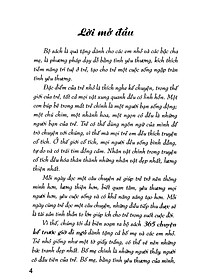 Lời mở đầu
Bộ sách là quà tặng dành cho các em nhỏ và các bậc cha
mẹ, là phương pháp dạy dỗ bằng tình yêu thương, kích thích
tiềm năng trí tuệ ở trẻ, tạo cho trẻ một cuộc sống ngập tràn
tình yêu thương.
Đặc điểm của trẻ nhỏ là thích nghe kể chuyện, trong thế
giới của trẻ, tất cả mọi vật xung quanh đều có linh hồn. Một
con búp bê trong mắt trẻ chính là một người bạn sống động;
một chú chim, một nhành hoa, một ngọn cỏ, đều là những
người bạn của trẻ. Trẻ có thể dùng ngôn ngữ của mình để
trò chuyện với chúng, vì thế mà trẻ em đã thích truyện
cổ tích. Ở thế giới cổ tích, có mọi người đều sống bình đẳng,
tự do và có trái tim đồng cảm. Nhân vật chính trong truyện
cổ tích đều hóa thân thành những nhân vật đẹp nhất, lương
thiện nhất.
Mỗi ngày đọc một câu chuyện sẽ giúp trẻ trở nên thông
minh hơn, lương thiện hơn, biết quan tâm, yêu thương mọi
người hơn, yêu cuộc sống và có khả năng sáng tạo hơn. Mỗi
ngày cùng trẻ đọc một câu chuyện, những điều thấy được sẽ
là tài sản tinh thần to lớn giúp ích cho trẻ trong suốt cuộc đời.
Vì thế, chúng tôi đã biên soạn ra bộ sách 365 chuyện
kể trước giờ đi ngủ dành tặng cho bố mẹ và các em nhỏ.
Trẻ nhỏ giống như một tờ giấy trắng, có thể vẽ nên những
bức tranh đẹp nhất. Bố mẹ chính là những người thầy người
cô đầu tiên của trẻ. Bố mẹ, bằng tình yêu thương của mình,
4